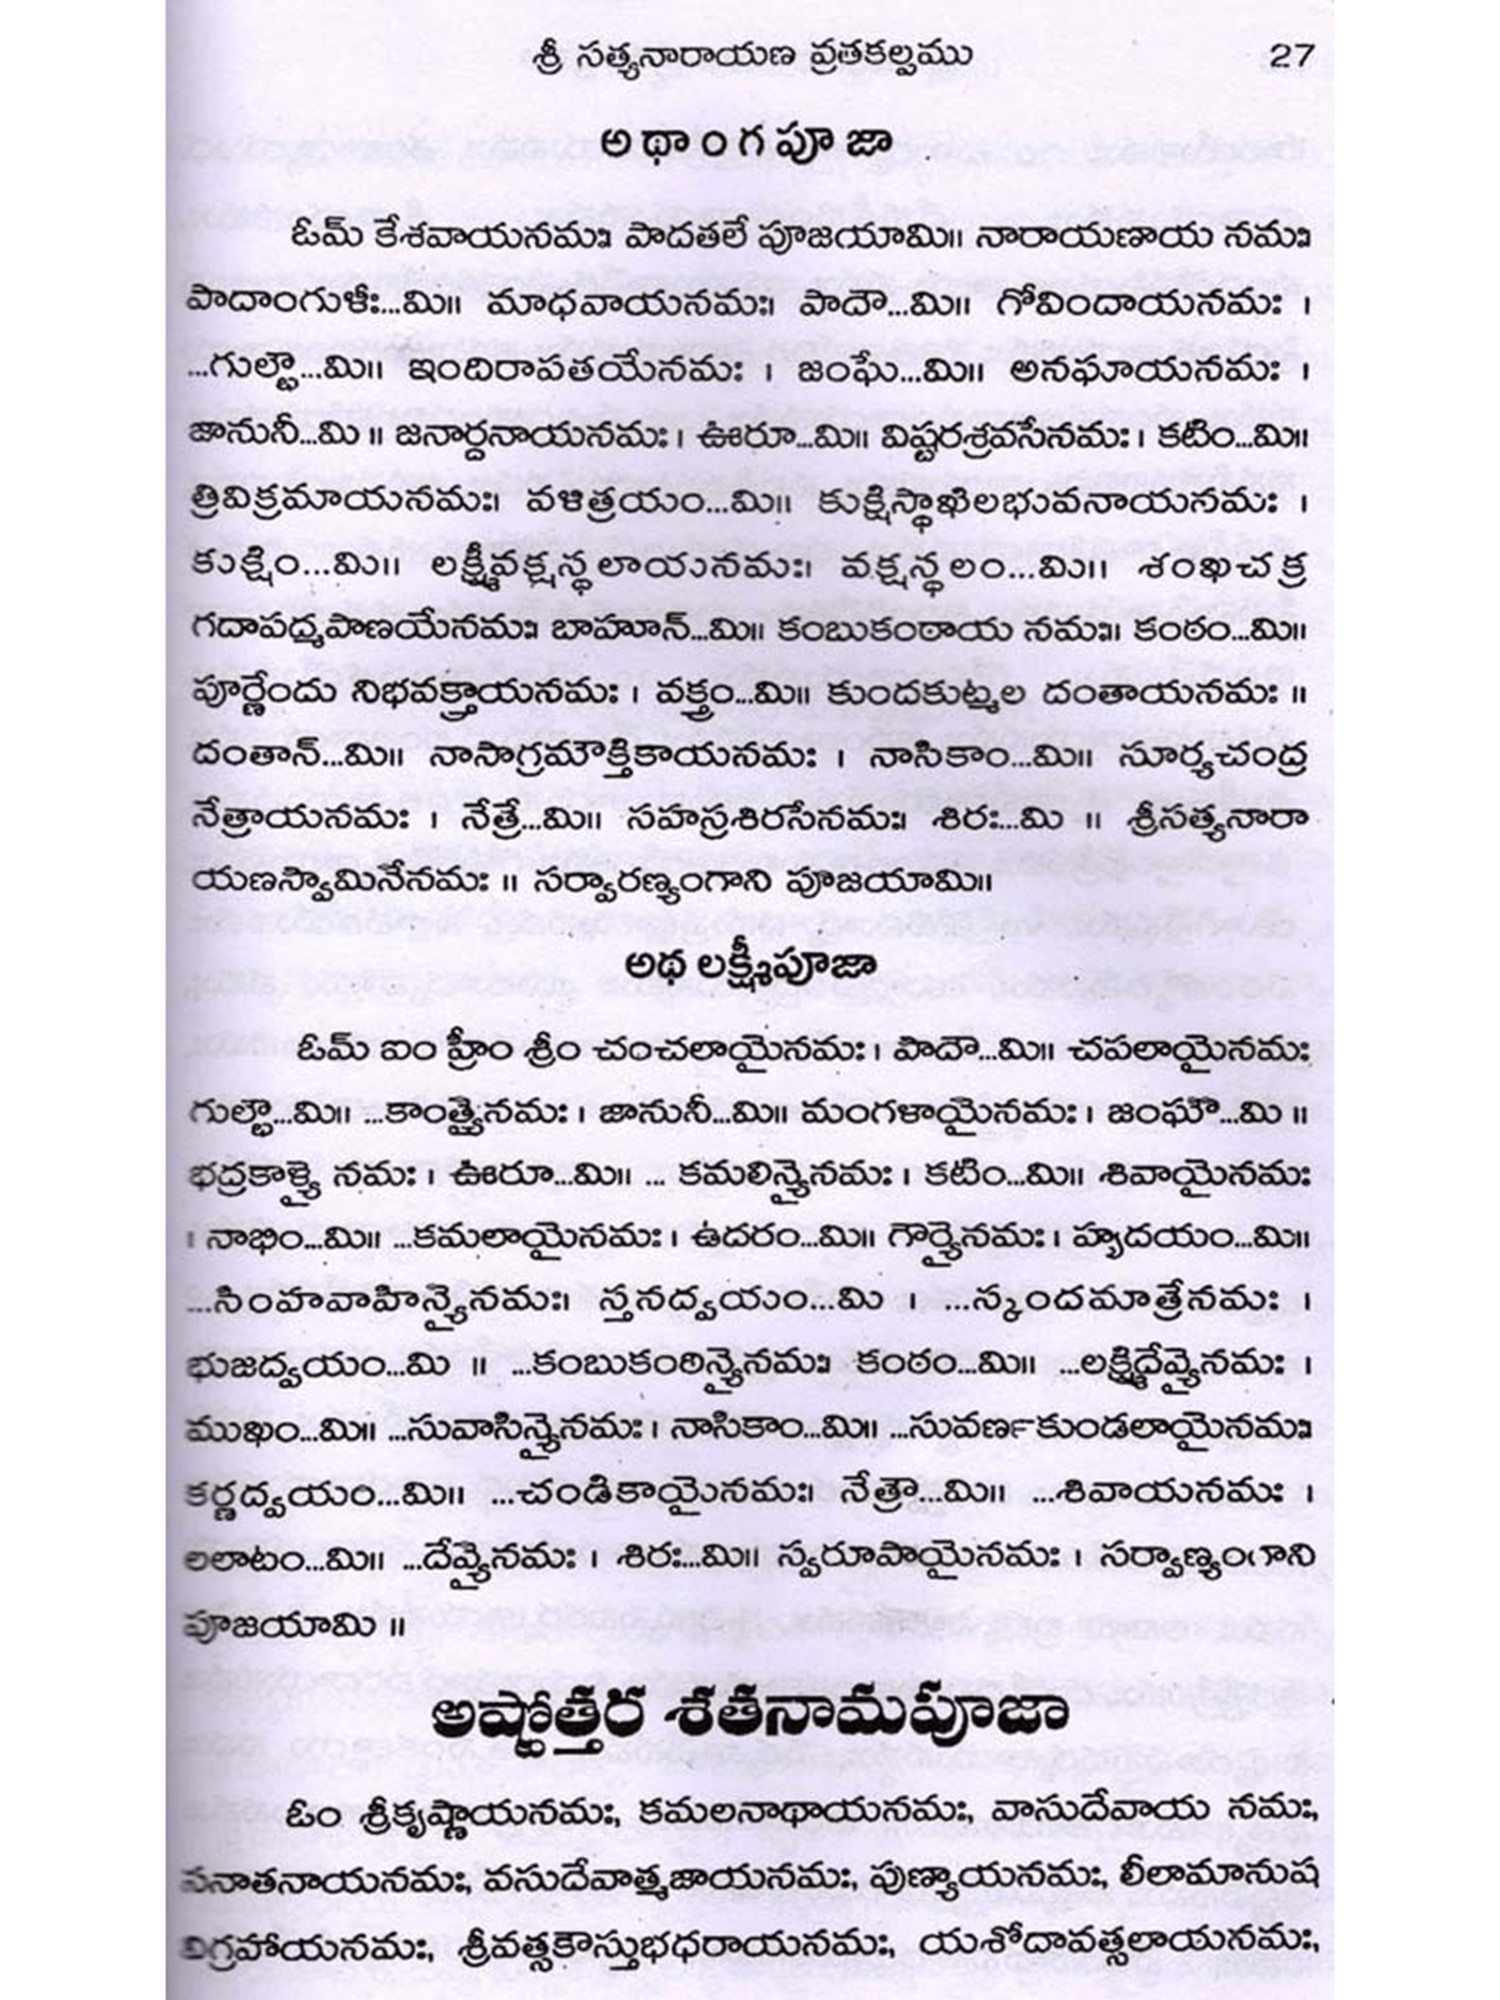 శ్రీ సత్యనారాయణ వ్రతకల్పము 27
అథాంగపూజా
ఓమ్ కేశవాయనమః। పాదతలే పూజయామి॥ నారాయణాయ నమః।
పాదాంగుళీః...మి॥ మాధవాయనమః। పాదౌ...మి॥ గోవిందాయనమః ।
...గుల్ఫౌ...మి॥ ఇందిరాపతయేనమః । జంఘే...మి॥ అనఘాయనమః ।
జానునీ...మి ॥ జనార్దనాయనమః । ఊరూ...మి॥ విష్టరశ్రవసేనమః । కటిం...మి॥
త్రివిక్రమాయనమః। వళిత్రయం...మి॥ కుక్షిస్థాఖిలభువనాయనమః ।
కుక్షిం...మి॥ లక్ష్మీవక్షస్థలాయనమః। వక్షస్థలం...మి॥ శంఖచక్ర
గదాపద్మపాణయేనమః। బాహూన్...మి॥ కంబుకంఠాయ నమః॥ కంఠం...మి॥
పూర్ణేందు నిభవక్త్రాయనమః । వక్త్రం...మి॥ కుందకుట్మల దంతాయనమః ॥
దంతాన్...మి॥ నాసాగ్రమౌక్తికాయనమః । నాసికాం...మి॥ సూర్యచంద్ర
నేత్రాయనమః । నేత్రే...మి॥ సహస్రశిరసేనమః। శిరః...మి ॥ శ్రీసత్యనారా
యణస్వామినేనమః ॥ సర్వారణ్యంగాని పూజయామి॥
అథ లక్ష్మీపూజా
ఓమ్ ఐం హ్రీం శ్రీం చంచలాయైనమః । పాదౌ...మి॥ చపలాయైనమః
గుల్ఫౌ...మి॥ ...కాంత్యైనమః । జానునీ...మి॥ మంగళాయైనమః । జంఘౌ...మి ॥
భద్రకాళ్యై నమః । ఊరూ...మి॥ ... కమలిన్యైనమః । కటిం...మి॥ శివాయైనమః
। నాభిం...మి॥ ...కమలాయైనమః । ఉదరం...మి॥ గౌర్యైనమః । హృదయం...మి॥
...సింహవాహిన్యైనమః। స్తనద్వయం...మి । ...స్కందమాత్రేనమః ।
భుజద్వయం...మి ॥ ...కంబుకంఠిన్యైనమః। కంఠం...మి॥ ...లక్ష్మీదేవ్యైనమః ।
ముఖం...మి॥ ...సువాసిన్యైనమః । నాసికాం...మి॥ ...సువర్ణకుండలాయైనమః।
కర్ణద్వయం...మి॥ ...చండికాయైనమః। నేత్రౌ...మి॥ ...శివాయనమః ।
లలాటం...మి॥ ...దేవ్యైనమః । శిరః...మి॥ స్వరూపాయైనమః । సర్వాణ్యంగాని
పూజయామి ॥
అష్టోత్తర శతనామపూజా
ఓం శ్రీకృష్ణాయనమః, కమలనాథాయనమః, వాసుదేవాయ నమః,
సనాతనాయనమః, వసుదేవాత్మజాయనమః, పుణ్యాయనమః, లీలామానుష
విగ్రహాయనమః, శ్రీవత్సకౌస్తుభధరాయనమః, యశోదావత్సలాయనమః,